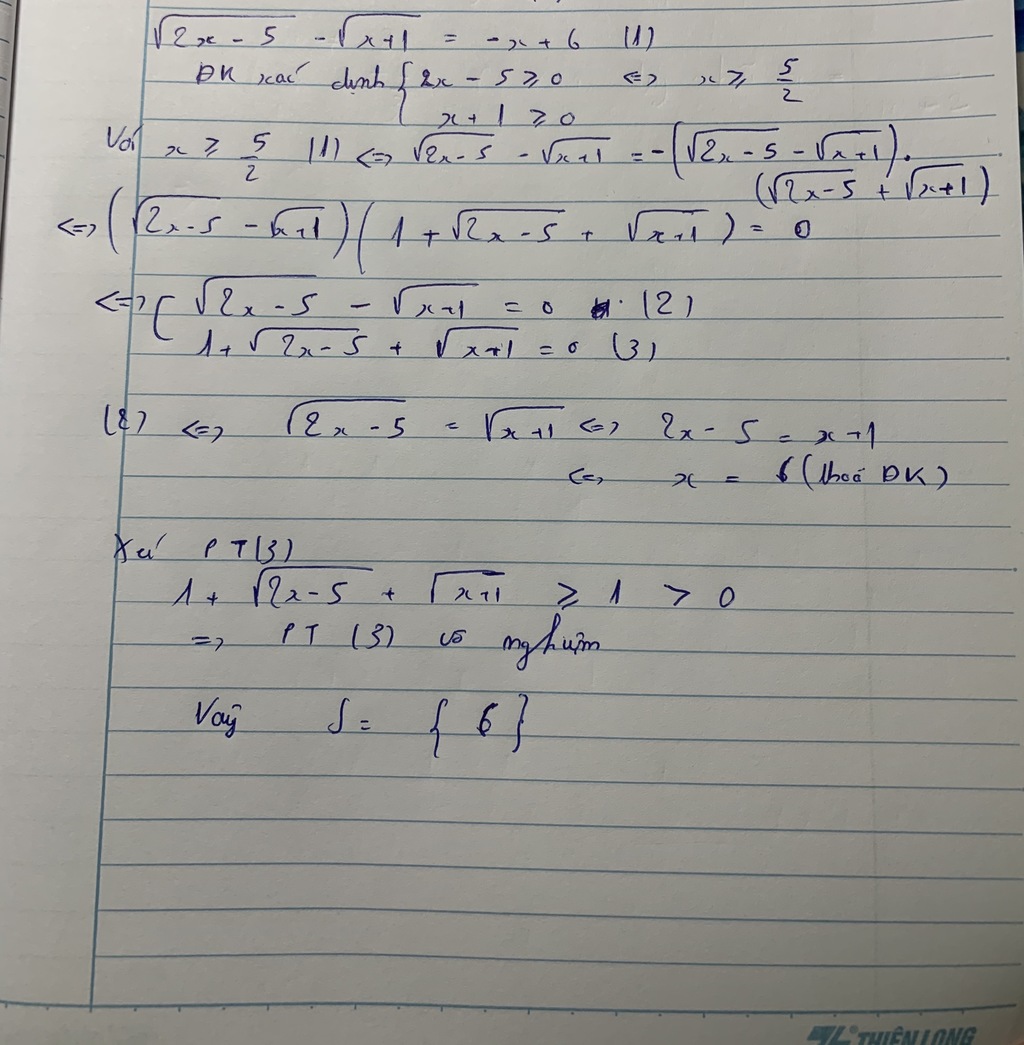 √(2x - 5) - √(x+1) = -x + 6 (1)
ĐK xác định { 2x - 5 ≥ 0 <=> x ≥ 5/2
x + 1 ≥ 0
Với x ≥ 5/2 (1) <=> √(2x-5) - √(x+1) = -(√(2x-5) - √(x+1)).
(√(2x-5) + √(x+1))
<=> (√(2x-5) - √(x+1))(1 + √(2x-5) + √(x+1)) = 0
<=> [ √(2x-5) - √(x+1) = 0 (2)
1 + √(2x-5) + √(x+1) = 0 (3)
(2) <=> √(2x-5) = √(x+1) <=> 2x - 5 = x+1
<=> x = 6 (thoả ĐK)
Xét PT(3)
1 + √(2x-5) + √(x+1) ≥ 1 > 0
=> PT (3) vô nghiệm
Vậy S = { 6 }
THIÊN LONG